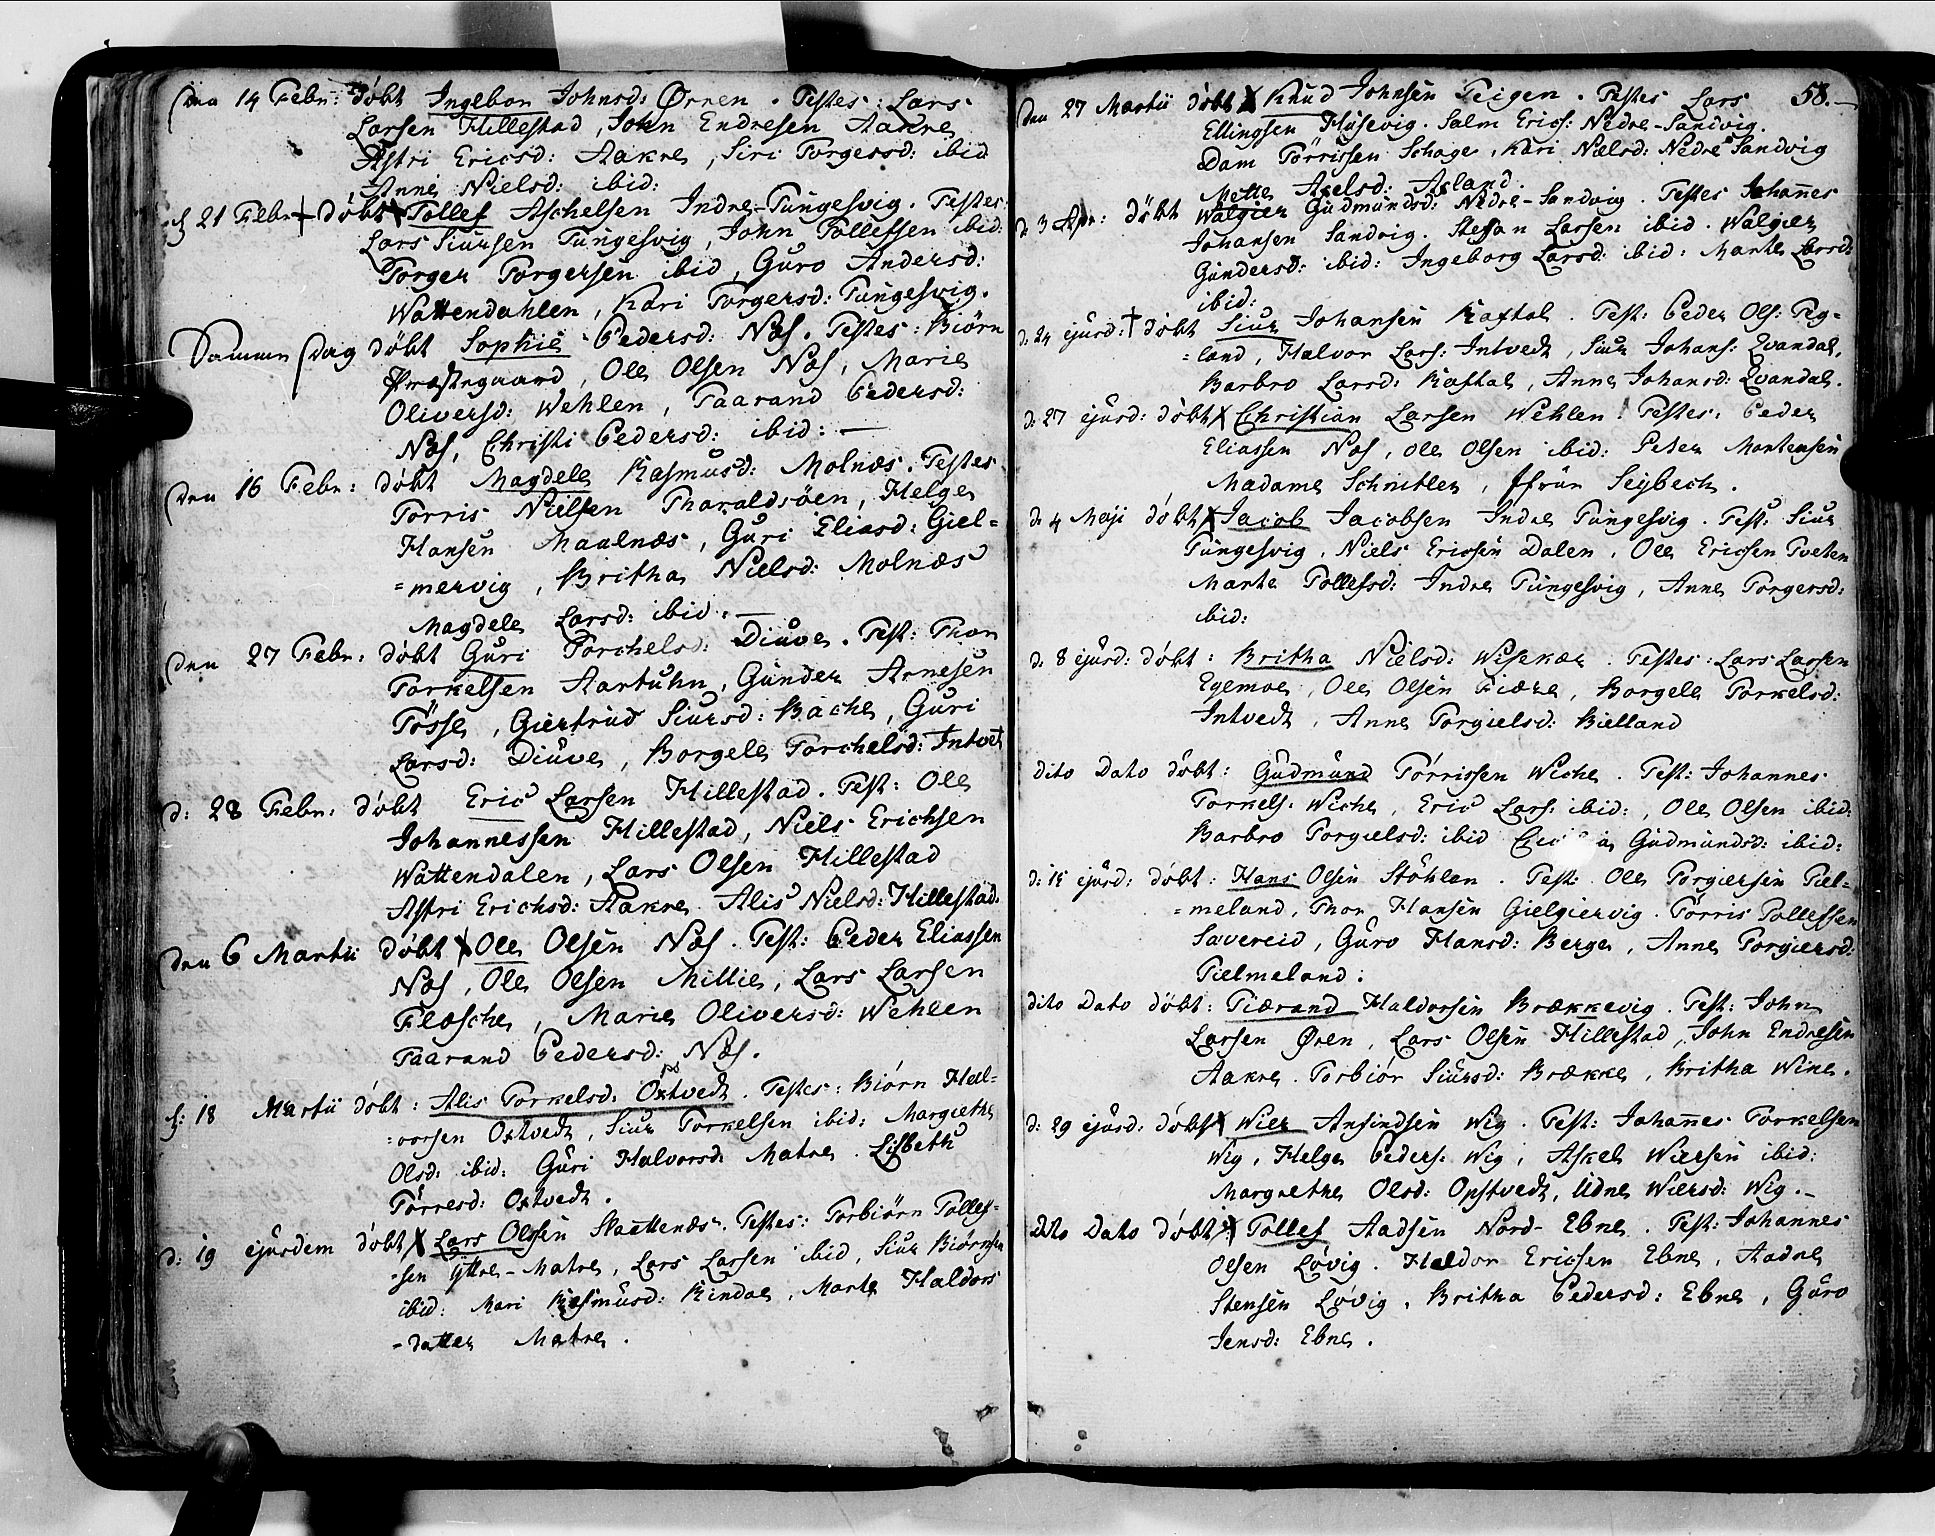 Den 14 Febr: döbt Ingebor Johnsd: Ørnen. Testes: Lars
Larsen Hillestad, John Endresen Aakre
Astri Ericsd: Aakre, Siri Torgersd: ibid
Anne Nielsd: ibid:
d 21 Febr: döbt Tollef Aschelsen Indre-Tungesvig. Testes:
Lars Siursen Tungesvig, John Tollefsen ibid:
Torger Torgersen ibid, Guro Andersd:
Wattendahlen, Kari Torgersd: Tungesvig.
Samme Dag döbt Sophie Pedersd: Næs. Testes: Biörn
Præstegaard, Ole Olsen Næs, Marie
Oliversd: Wehlen, Taarand Pedersd:
Næs, Christi Pedersd: ibid: —
Den 16 Febr: döbt Magdele Rasmusd: Molnæs. Testes
Torris Nielsen Tharaldsöen, Helge
Hansen Maalnæs, Guri Eliasd: Giel=
=mervig, Britha Nielsd: Molnæs
Magdele Larsd: ibid. —
Den 27 Febr: döbt Guri Torchelsd: Diuve. Test: Thor
Torkelsen Aartuhn, Gunder Arnesen
Tösse, Giertrud Siursd: Bache, Guri
Larsd: Diuve, Borgele Torchelsd: Intvet
d: 28 Febr: döbt Eric Larsen Hillestad. Test: Ole
Johannessen Hillestad, Niels Erichsen
Wattendalen, Lars Olsen Hillestad
Astri Erichsd: Aakre Alis Nielsd: Hillestad.
Den 6 Martii döbt Ole Olsen Næs. Test: Peder Eliassen
Næs, Ole Olsen Millie, Lars Larsen
Flasche, Marie Oliversd: Wehlen
Taarand Pedersd: Næs.
d: 18 Martii döbt: Alis Torkelsd: Oxtvedt. Testes: Biörn Hal=
=vorsen Oxtvedt, Siur Torkelsen ibid: Margrethe
Olsd: ibid: Guri Halvorsd: Matre. Lisbeth
Törresd: Oxtvedt.
d: 19 ejusdem döbt Lars Olssen Staettenæs. Testes: Torbiörn Tollef=
=sen Yttre-Matre, Lars Larsen ibid, Siur Biörnsen
ibid: Mari Rasmusd: Rindal, Marte Haldors
-datter Matre.
58. —
Den 27 Martii döbt Knud Johnsen Teigen. Testes Lars
Ellingsen Husevig. Salm Erics: Nedre-Sandvig.
Dam Törrissen Schage, Kari Nielsd: Nedre Sandvig
Mette Axelsd: Axland.
d: 3 Apr: döbt Walgier Gudmundsd: Nedre-Sandvig. Testes Johannes
Johansen Sandvig. Steffan Larsen ibid. Walgier
Gundersd: ibid: Ingeborg Larsd: ibid: Marte Larsd:
ibid:
d: 24 ejusd: döbt Siur Johansen Kaftal. Test: Peder Ols: Teg=
=land, Halvor Lars: Intvedt, Siur Johans: Qvandal,
Barbro Larsd: Kaftal, Anne Johansd: Qvandal.
d: 27 ejusd: döbt Christian Larsen Wehlen. Testes: Peder
Eliassen Næs, Ole Olsen ibid: Peter Mortensen
Madame Schnitler, Jfrue Seybech.
d: 4 Maji döbt Jacob Jacobsen Indre Tungesvig. Test: Siur
Tungesvig, Niels Ericsen Dalen, Ole Ericsen Tveten
Marte Tollefsd: Indre Tungesvig, Anne Torgersd:
ibid:
d: 8 ejusd: döbt: Britha Nielsd: Wisekær. Testes: Lars Larsen
Egemoe, Ole Olsen Fiære, Borgele Torkelsd:
Intvedt, Anne Torgielsd: Bielland
dito Dato döbt: Gudmund Törrissen Wiche. Test: Johannes
Torkels: Wiche, Eric Lars: ibid:, Ole Olsen ibid:
Barbro Torgielsd: ibid Gudmundsd: ibid:
d: 15 ejusd: döbt: Hans Olsen Stöhlen. Test: Ole Torgiersen Tiel=
=meland, Thor Hansen Gielgiervig. Törris Tollefsen
Savereid, Guro Hansd: Berge, Anne Torgiersd:
Tielmeland.
dito Dato döbt: Tiærand Haldorsen Brækkevig. Test: John
Larsen Øren, Lars Olsen Hillestad, John Endresen
Aakre. Torbiör Siursd: Brække, Britha Wine.
d: 29 ejusd: döbt Wier Ansindsen Wig. Test: Johannes Torkelsen
Wig, Helge Peders: Wig, Askel Wiersen ibid:
Margrethe Olsd: Opstvedt, Udne Wiersd: Wig. —
Dito Dato döbt Tollef Aadsen Nord-Ebne. Test: Johannes
Olsen Lovig. Haldor Ericsen Ebne, Aadne
Stensen Lovig, Britha Pedersd: Ebne, Guro
Jensd: Ebne.